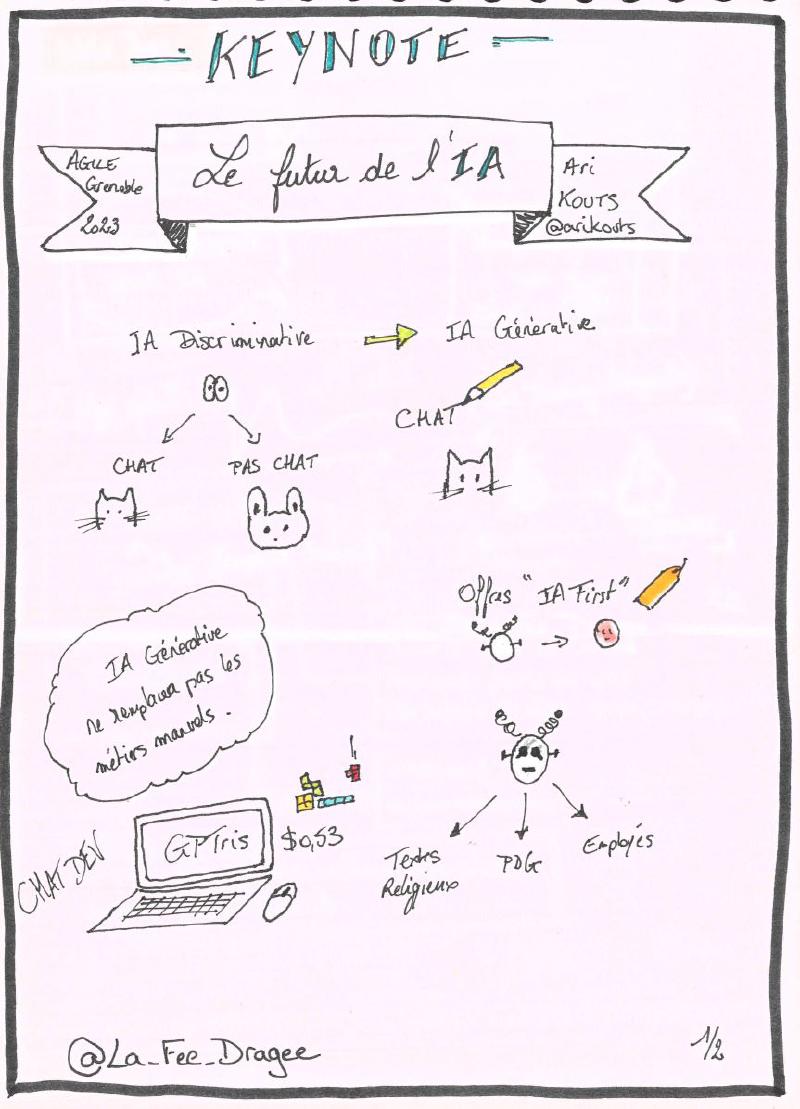 KEYNOTE
AGILE
Grenoble
2023
Le futur de l'IA
Ari
KOUTS
@arikouts
IA Discriminative
IA Générative
CHAT
PAS CHAT
CHAT
Offres "IA First"
IA Générative
ne remplacera pas les
métiers manuels.
CHAT DEV
GPTris
$0,53
Textes
Religieux
PDG
Employés
@La_Fee_Dragee
1/2